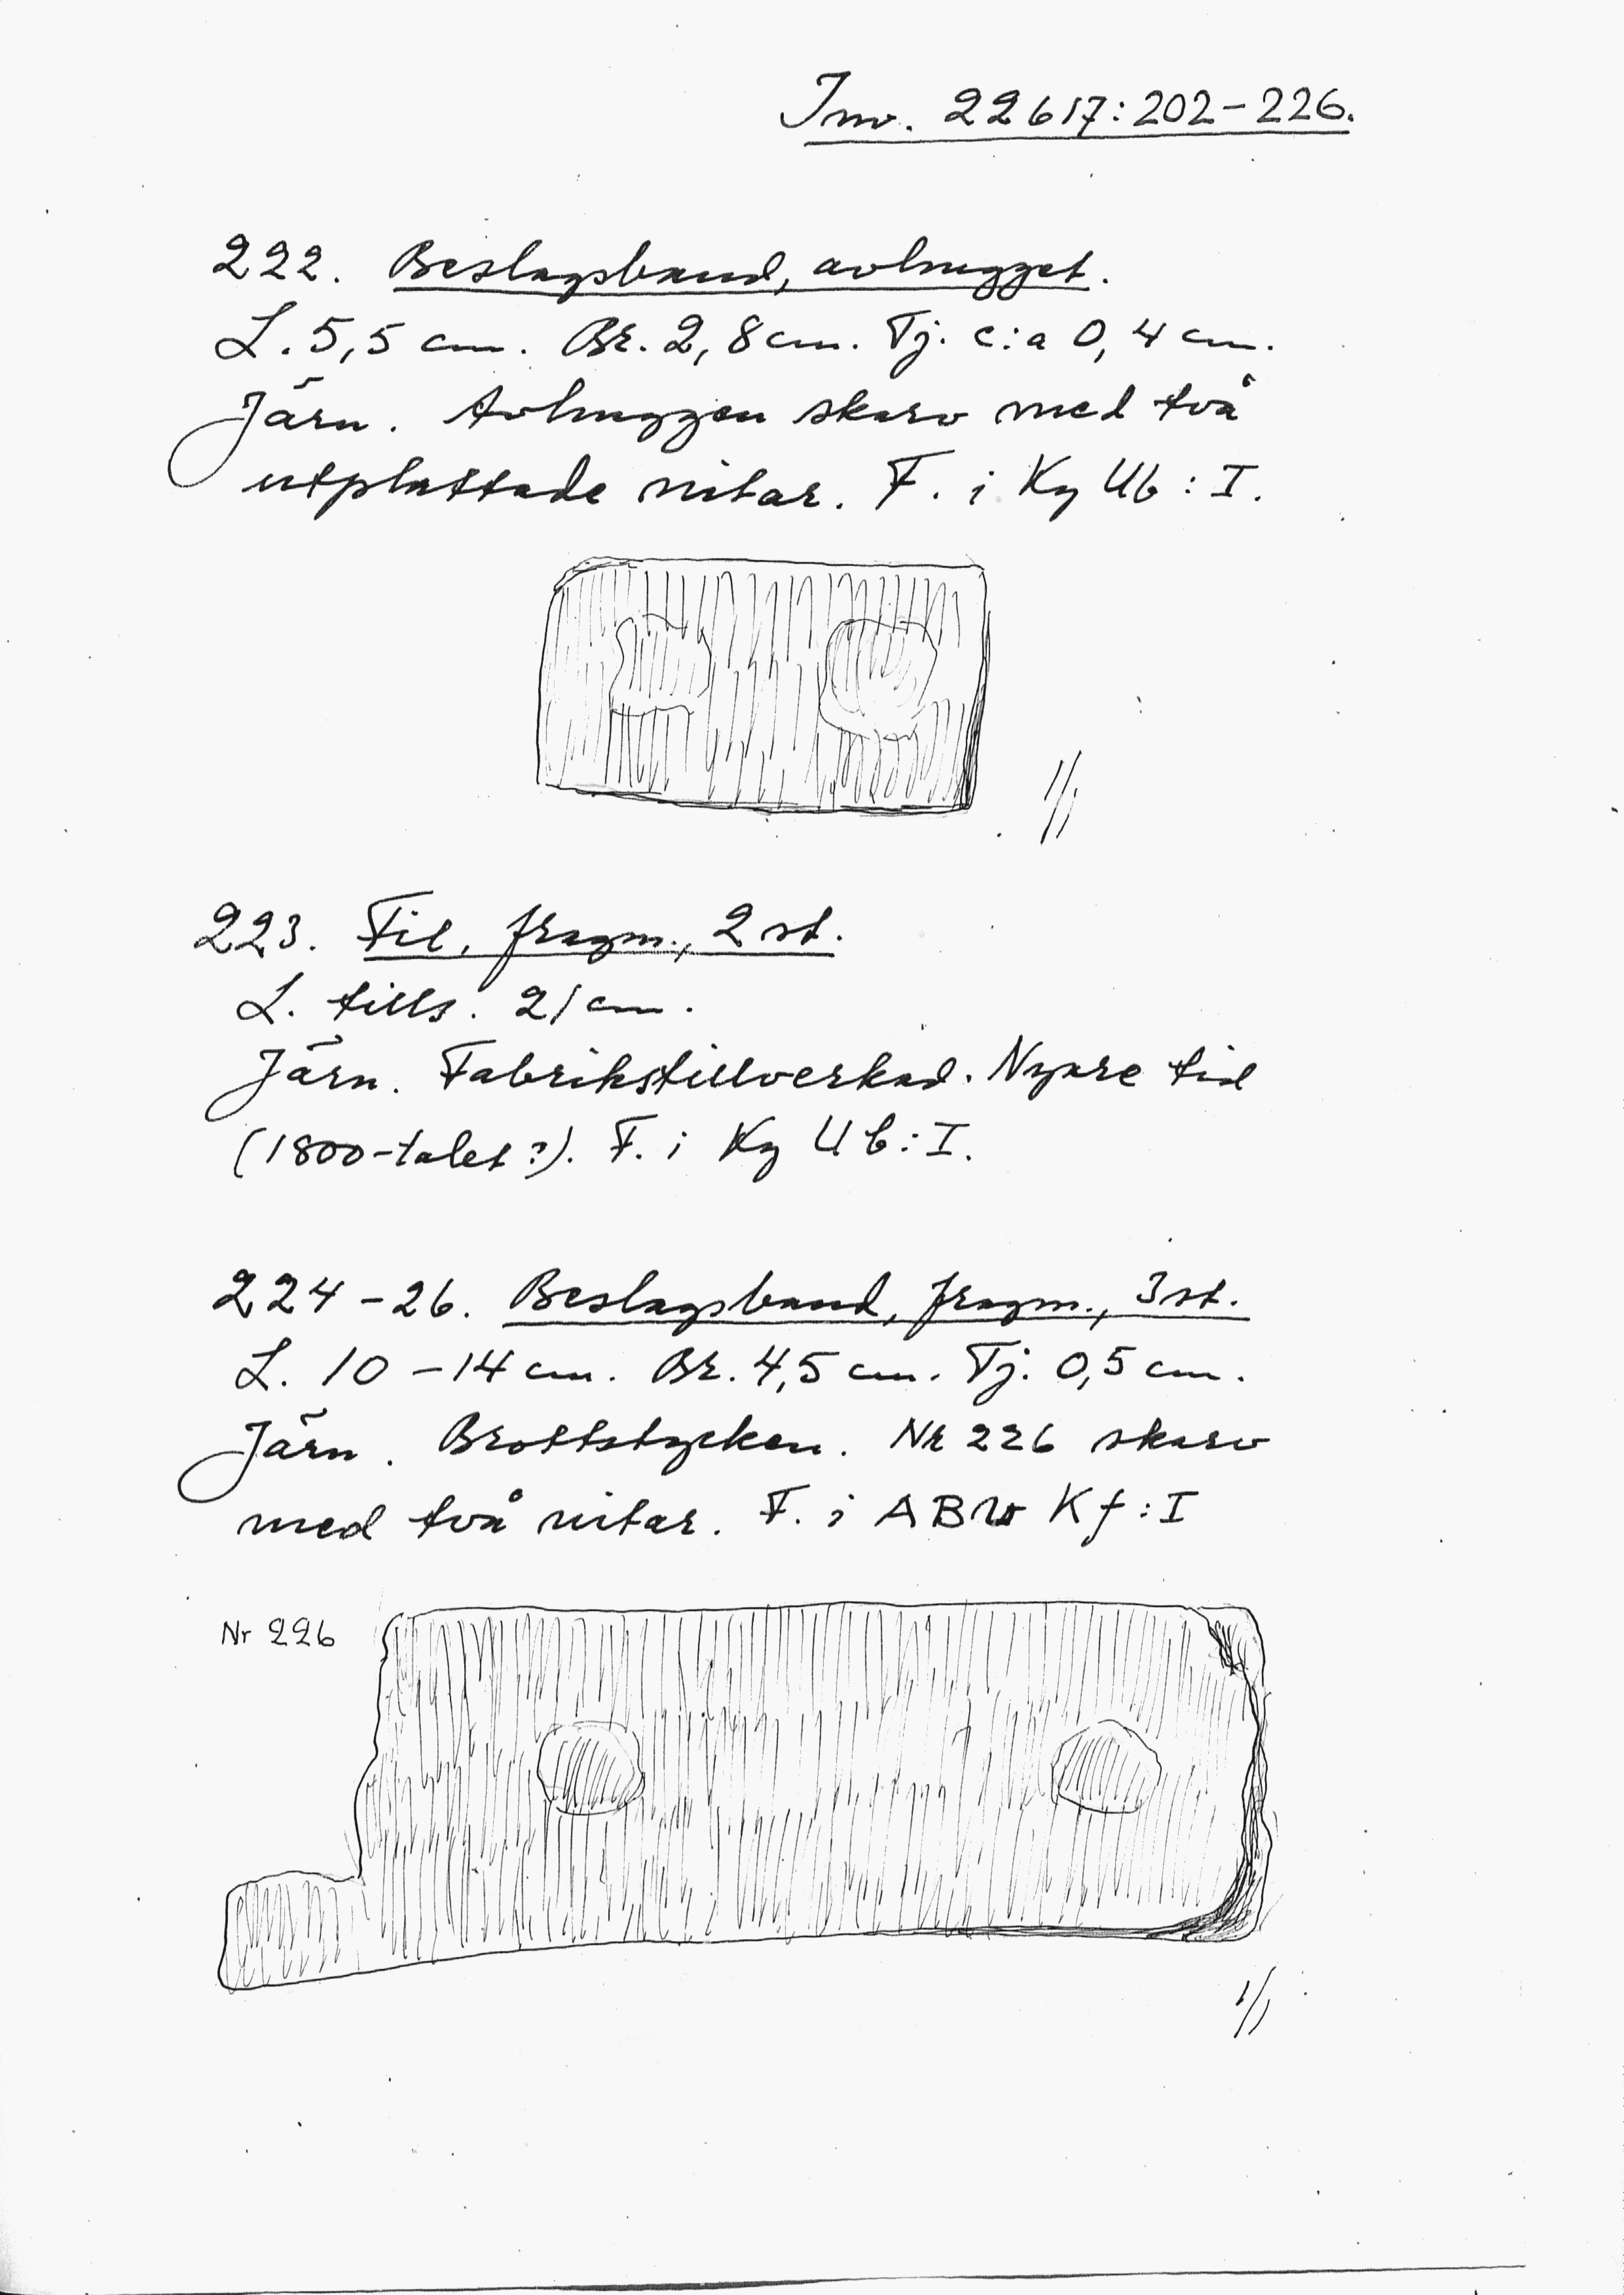 Inv. 22617:202-226.
222. Beslagsband, avhugget.
L. 5,5 cm. Br. 2,8 cm. Tj. c:a 0,4 cm.
Järn. Avhuggen skarv med två
utplattade nitar. F. i Ky Ub:I.
1/1
223. Fil, fragm., 2 st.
L. tills. 21 cm.
Järn. Fabrikstillverkad. Nyare tid
(1800-talet?). F. i Ky Ub:I.
224-26. Beslagsband, fragm., 3 st.
L. 10-14 cm. Br. 4,5 cm. Tj. 0,5 cm.
Järn. Brottstycken. Nr 226 skarv
med två nitar. F. i ABV Kf:I
Nr 226
1/1